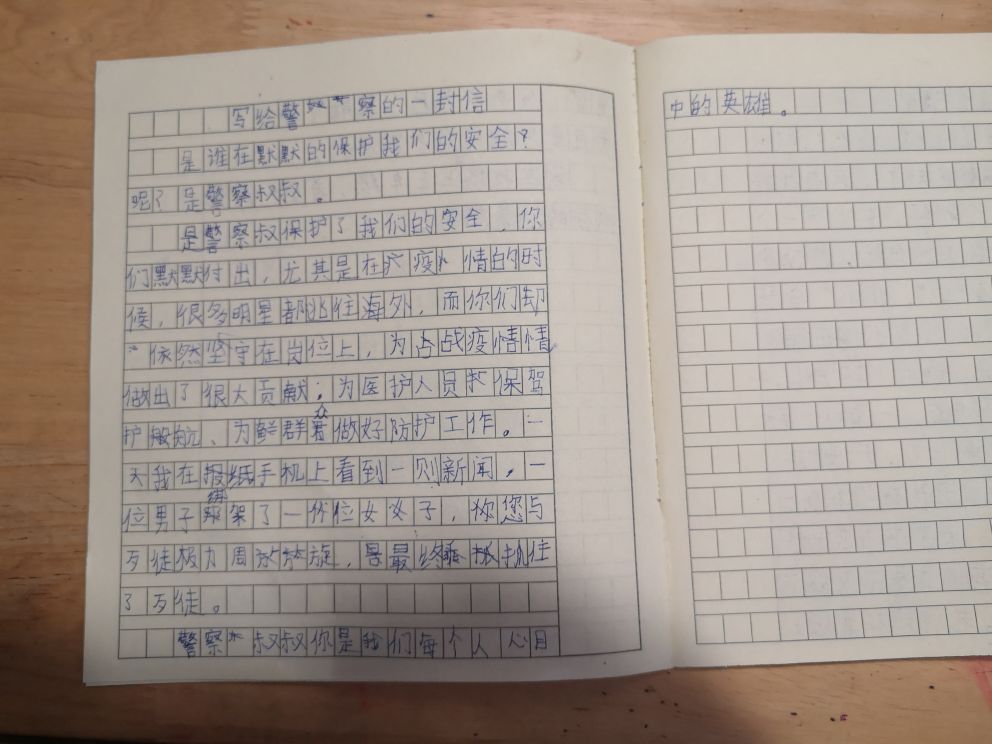 写给警察的一封信
是谁在默默的保护我们的安全?
呢了是警察叔叔。
是警察叔保护了我们的安全,你
们默默付出,尤其是在疫情的时
候,很多明星都逃往海外,而你们却
依然坚守在岗位上,为占战疫情情
做出了很大贡献;为医护人员保驾
护航、为群众做好防护工作。一
天我在报纸手机上看到一则新闻,一
位男子绑架了一位女子,你您与
歹徒极力周旋,最终抓住
了歹徒。
警察叔叔你是我们每个人心目
中的英雄。